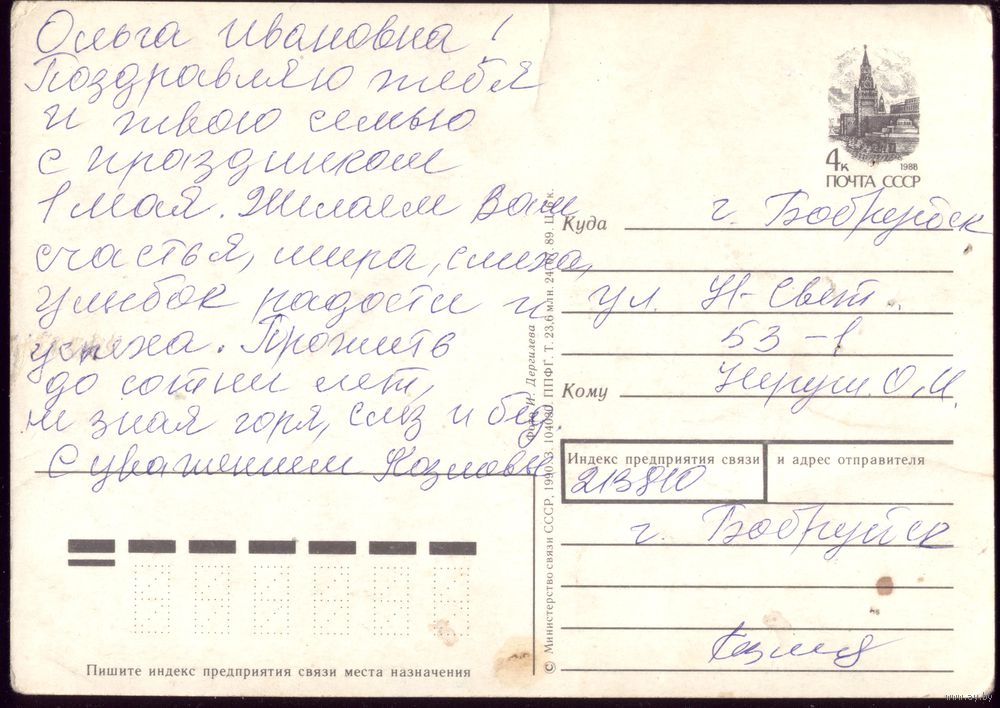 Ольга Ивановна!
Поздравляю тебя
и твою семью
с праздником
1 мая. Желаем Вам
счастья, мира, смеха,
улыбок радости и
успеха. Прожить
до сотни лет,
не зная горя, слёз и бед.
С уважением Козловы
4к
1988
ПОЧТА СССР
Куда г. Бобруйск
ул. Н-Свет.
53-1
Кому О.И.
Индекс предприятия связи и адрес отправителя
213810
г. Бобруйск
Пишите индекс предприятия связи места назначения
© Министерство связи СССР, 1990. З. 104030. ППФГ. Т. 23,6 млн. 89. Ц. к.
Фото И. Дергилева
www.ay.by